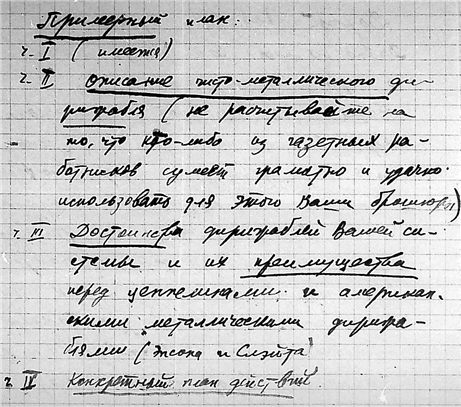 Примерный план:
ч. I (имеется)
ч. II Описание чисто-металлического ди-
рижабля (не расчитывайте на
то, что кто-либо из газетных ра-
ботников сумеет грамотно и удачно
использовать для этого Ваши брошюры)
ч. III Достоинства дирижаблей Вашей си-
стемы и их преимущества
перед цеппелинами и американ-
скими металлическими дирижа-
блями (Жсона и Слэйта)
ч. IV Конкретный план действий.